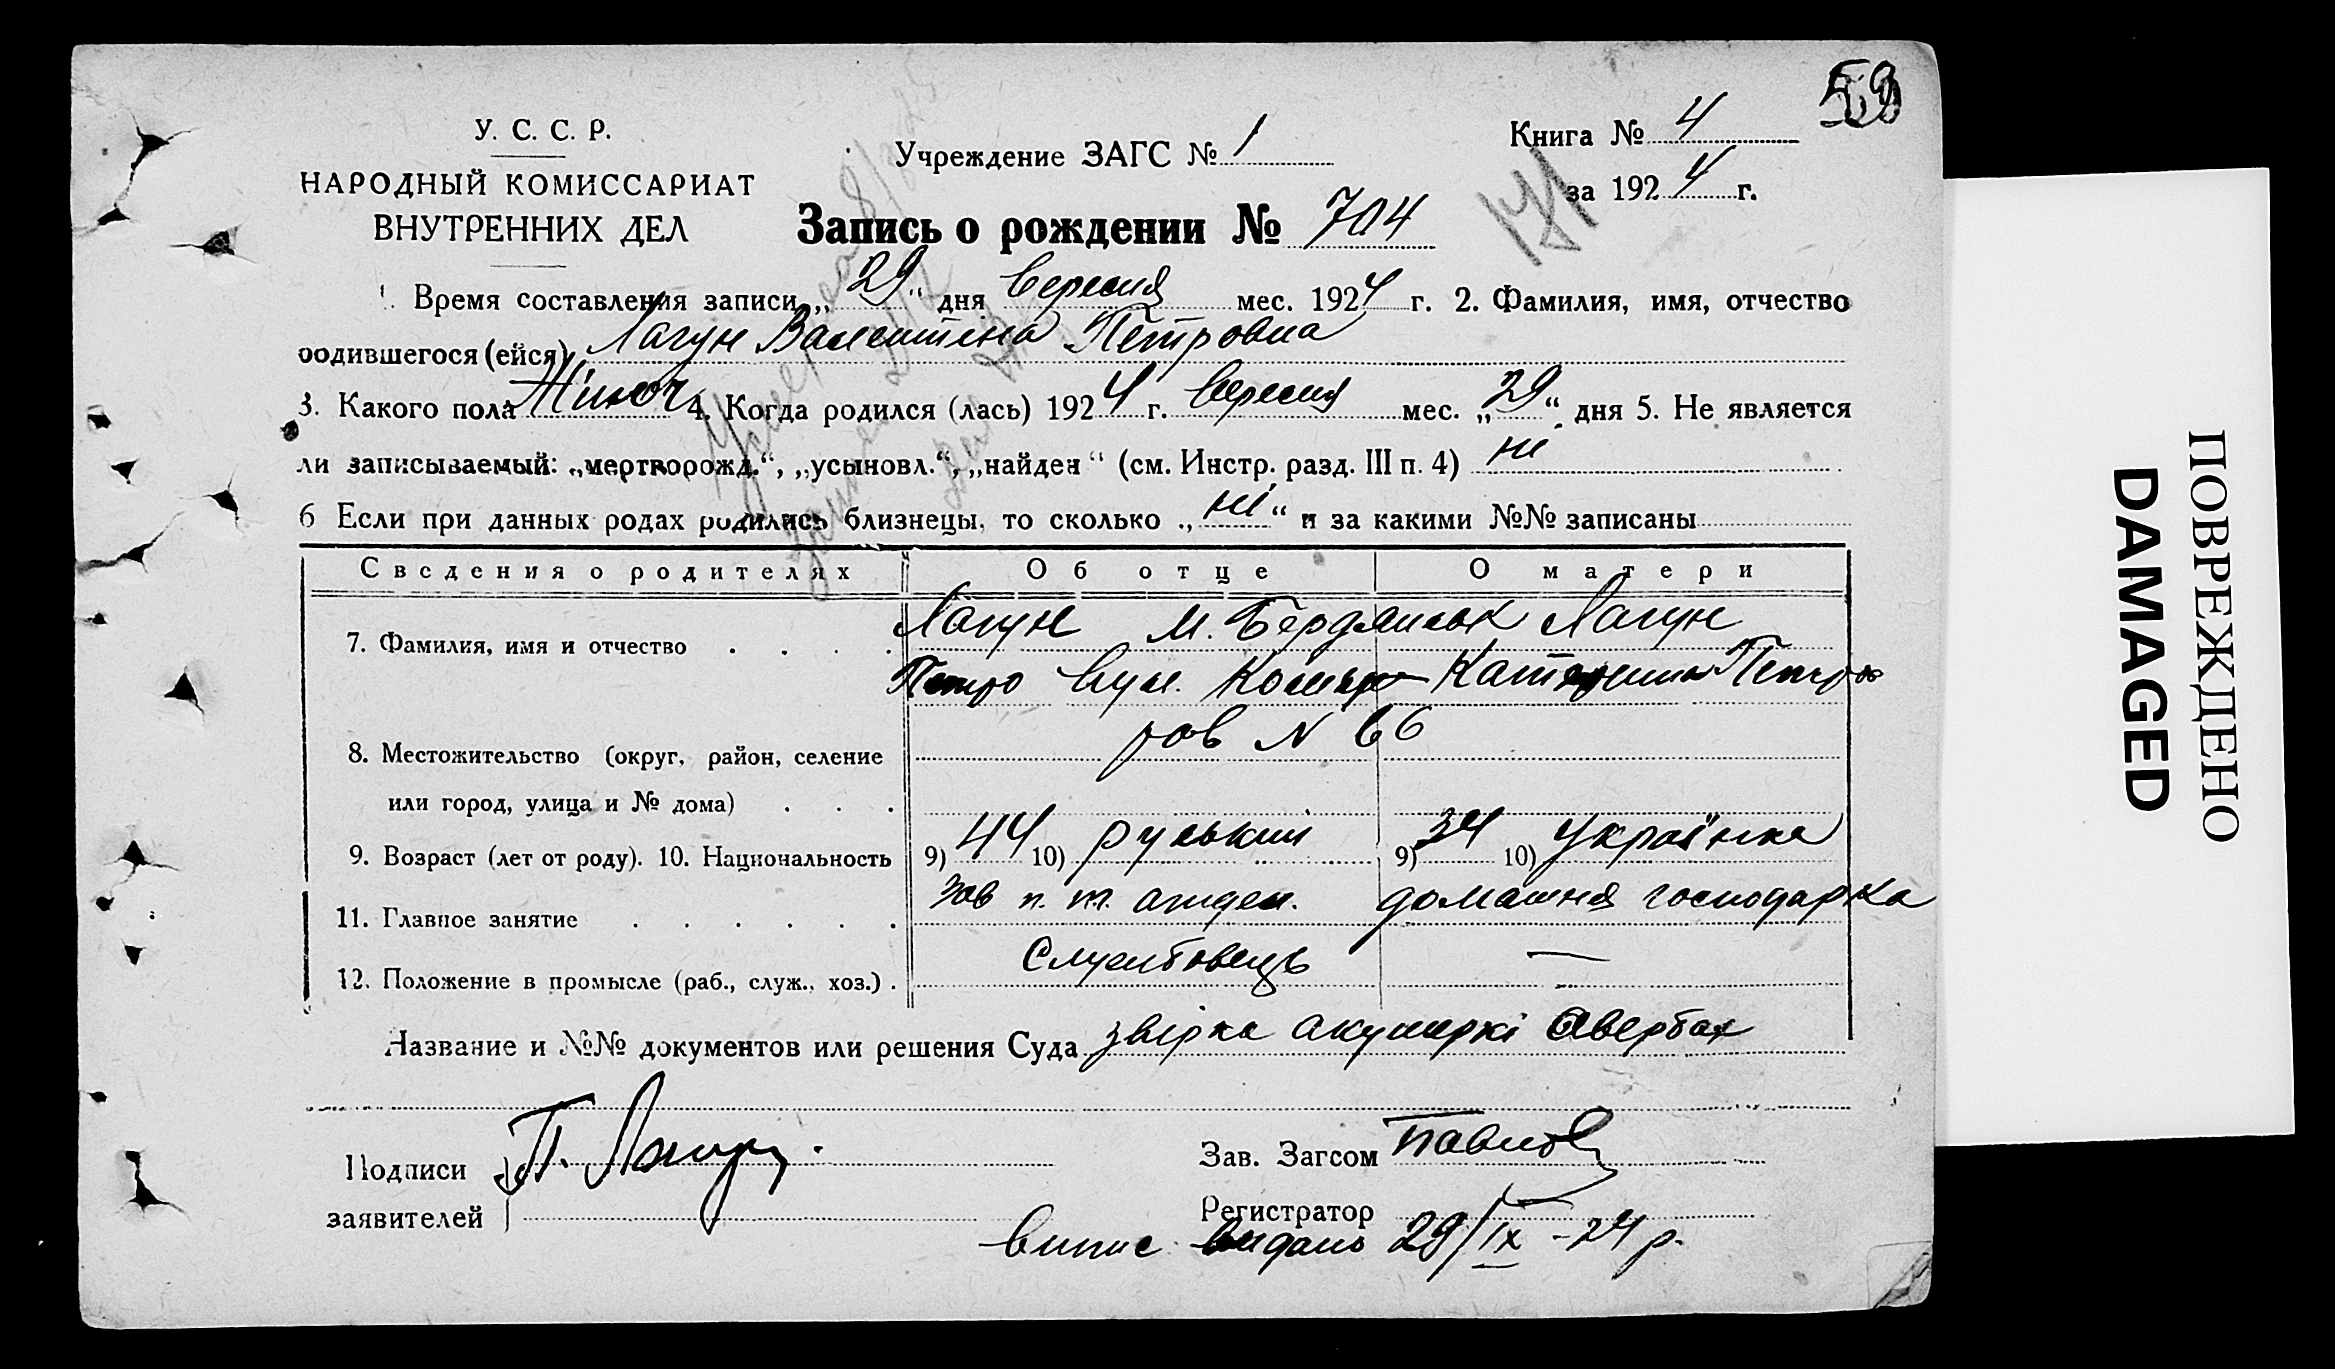 59
У. С. С. Р.
НАРОДНЫЙ КОМИССАРИАТ
ВНУТРЕННИХ ДЕЛ
Учреждение ЗАГС № 1
Книга № 4
за 1924 г.
171
Запись о рождении № 704
1. Время составления записи „29“ дня Вересня мес. 1924 г. 2. Фамилия, имя, отчество
родившегося (ейся) Лагун Валентина Петровна
3. Какого пола Жіноч 4. Когда родился (лась) 1924 г. Вересня мес. „29“ дня 5. Не является
ли записываемый: „мертворожд.“, „усыновл.“, „найден“ (см. Инстр. разд. III п. 4) ні
6 Если при данных родах родились близнецы, то сколько „ні“ и за какими №№ записаны
Сведения о родителях Об отце О матери
7. Фамилия, имя и отчество Лагун м. Бердянськ Лагун
Петро вул. Комъяр Катерина Петро
8. Местожительство (округ, район, селение ров N 66
или город, улица и № дома)
9. Возраст (лет от роду). 10. Национальность 9) 44 10) руський 9) 34 10) Українка
11. Главное занятие Зав п. т. отдел. домашня господарка
12. Положение в промысле (раб., служ., хоз.) Службовець —
Название и №№ документов или решения Суда звірка акушеркі Авербах
Подписи П. Лагун
заявителей
Зав. Загсом Павлов
Регистратор
випис видань 29/IX - 24 р.
ПОВРЕЖДЕНО
DAMAGED